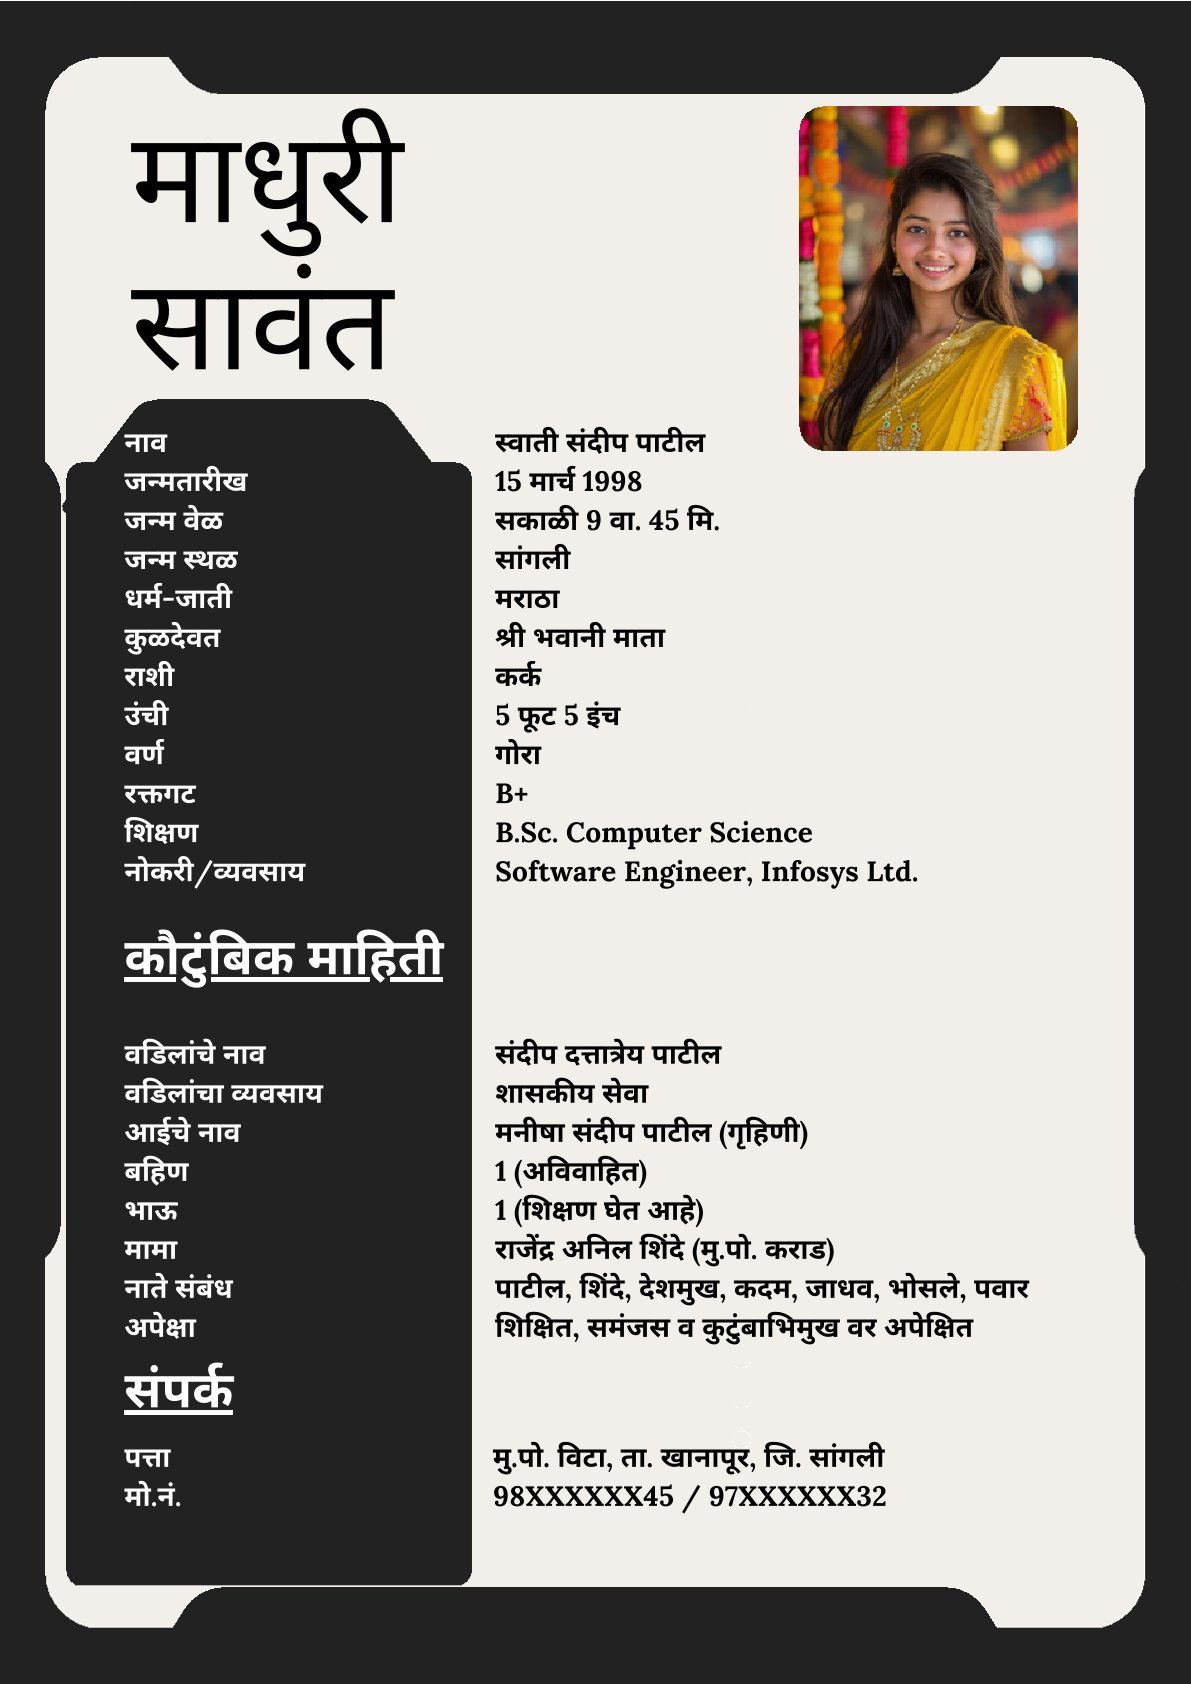 माधुरी
सावंत
नाव स्वाती संदीप पाटील
जन्मतारीख 15 मार्च 1998
जन्म वेळ सकाळी 9 वा. 45 मि.
जन्म स्थळ सांगली
धर्म-जाती मराठा
कुळदेवत श्री भवानी माता
राशी कर्क
उंची 5 फूट 5 इंच
वर्ण गोरा
रक्तगट B+
शिक्षण B.Sc. Computer Science
नोकरी/व्यवसाय Software Engineer, Infosys Ltd.
कौटुंबिक माहिती
वडिलांचे नाव संदीप दत्तात्रेय पाटील
वडिलांचा व्यवसाय शासकीय सेवा
आईचे नाव मनीषा संदीप पाटील (गृहिणी)
बहिण 1 (अविवाहित)
भाऊ 1 (शिक्षण घेत आहे)
मामा राजेंद्र अनिल शिंदे (मु.पो. कराड)
नाते संबंध पाटील, शिंदे, देशमुख, कदम, जाधव, भोसले, पवार
अपेक्षा शिक्षित, समंजस व कुटुंबाभिमुख वर अपेक्षित
संपर्क
पत्ता मु.पो. विटा, ता. खानापूर, जि. सांगली
मो.नं. 98XXXXXX45 / 97XXXXXX32